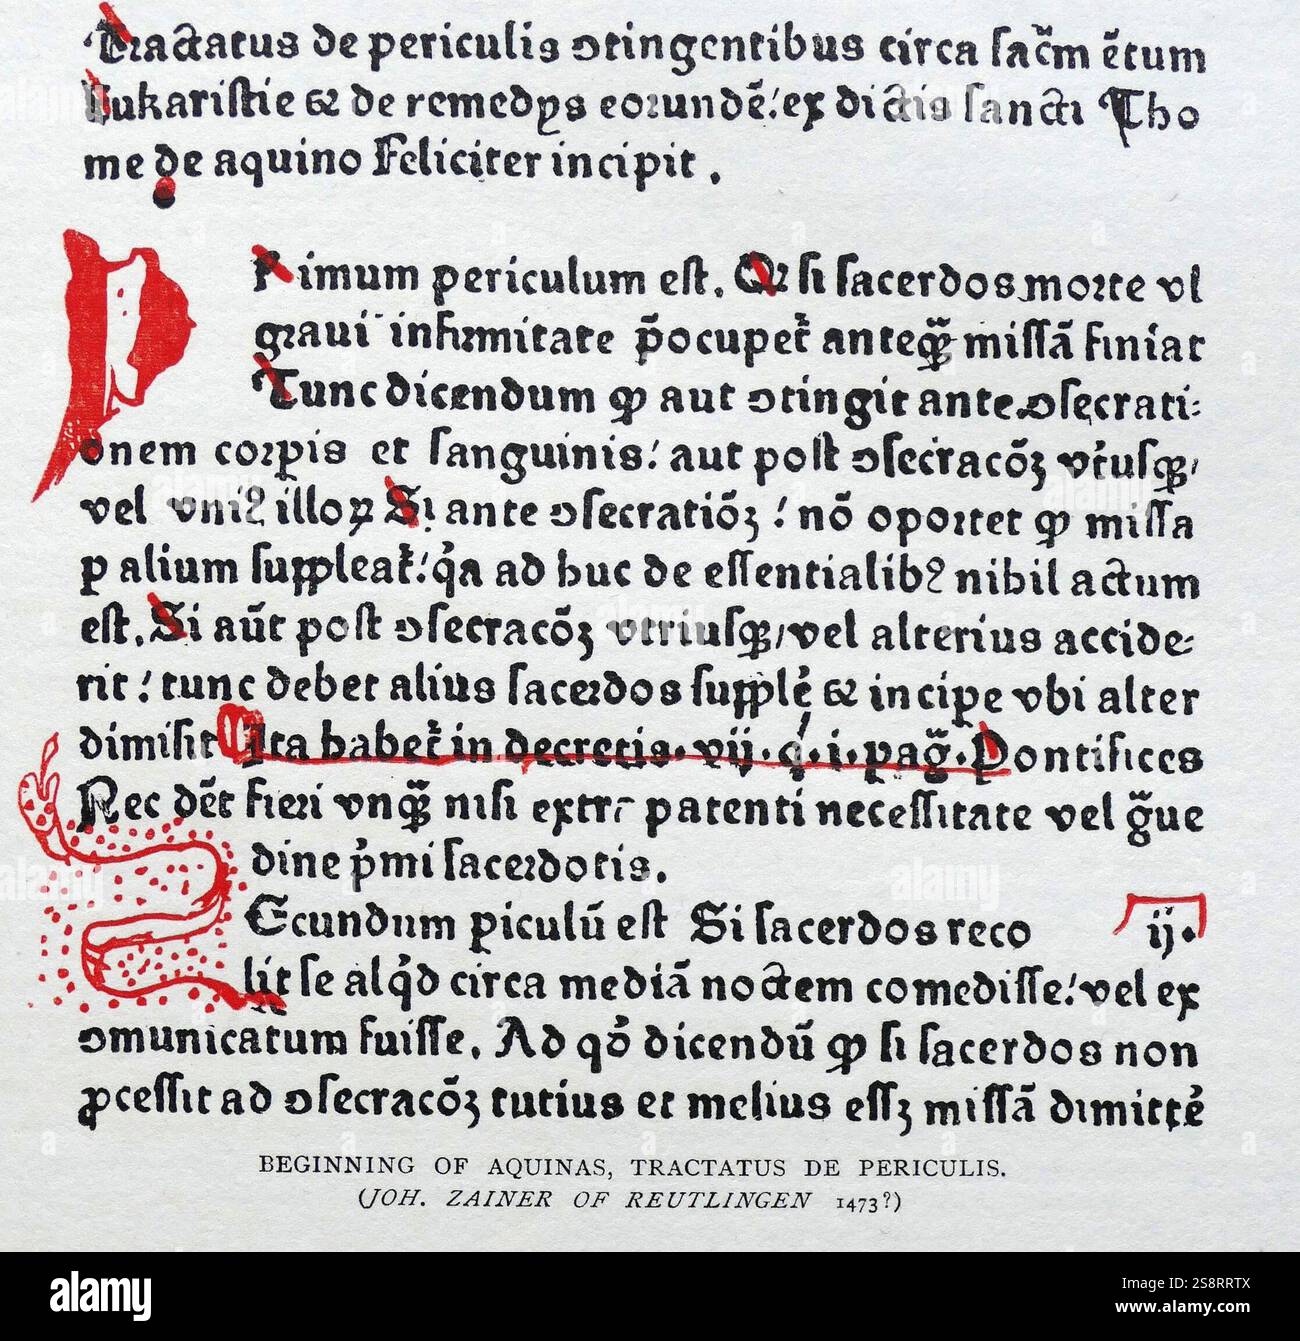 Tractatus de periculis ↄtingentibus circa sac̄m ētum
Eukaristie & de remedijs eorundē: ex dictis sancti Tho
me de aquino Feliciter incipit.
PRimum periculum est. Qꝛ si sacerdos morte vl
graui infirmitate p̄ocupet᷑ anteqꝫ̄ missā finiat
Tunc dicendum ꝙ aut ↄtingit ante ↄsecrati⸗
onem corpis et sanguinis: aut post ↄsecracōꝫ vtriusqꝫ/
vel vniꝰ illoꝝ Si ante ↄsecratiōꝫ: nō oportet ꝙ missa
p alium suppleat᷑: qꝛ ad huc de essentialibꝰ nihil actum
est. Si aūt post ↄsecracōꝫ vtriusqꝫ/vel alterius accide⸗
rit: tunc debet alius sacerdos supplē & incipe vbi alter
dimisit Ita habet᷑ in decretis. vij. q̇. i. pag̃. Pontifices
Nec dēt fieri vnqꝫ̄ nisi extr patenti necessitate vel g̃ue
dine p̄mi sacerdotis.
SEcundum piculū est Si sacerdos reco ij.
lit se alqd circa mediā noctem comedisse: vel ex
ↄmunicatum fuisse. Ad qꝺ dicendū ꝙ si sacerdos non
ꝓcessit ad ↄsecracōꝫ tutius et melius essꝫ missā dimittē
BEGINNING OF AQUINAS, TRACTATUS DE PERICULIS.
(JOH. ZAINER OF REUTLINGEN 1473?)
alamy
Image ID: 2S8RRTX
www.alamy.com